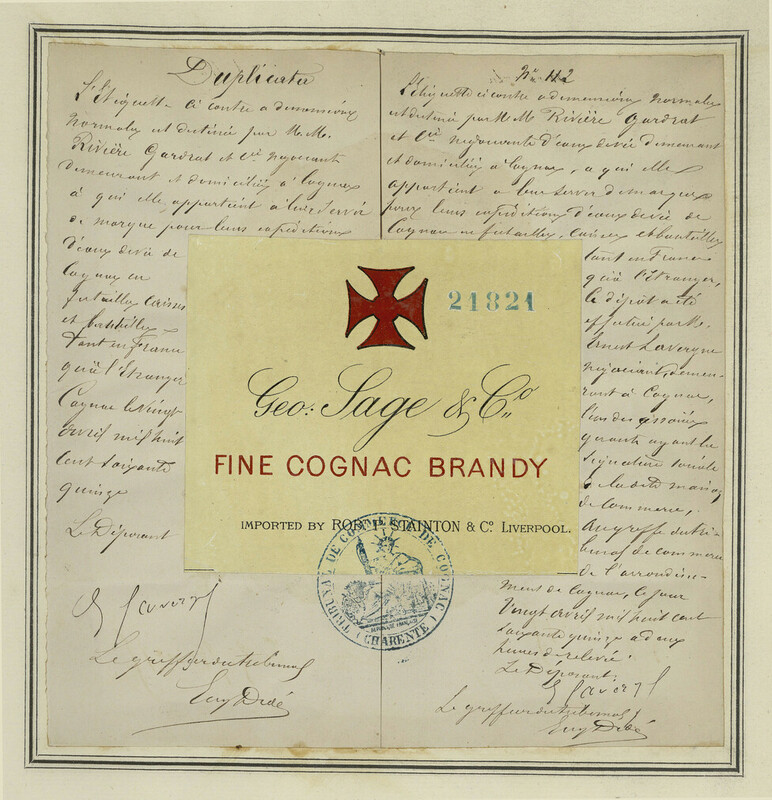 Duplicata
L'étiquette ci contre a dimensions
normales est destinée par M. M.
Rivière Gardrat et Cie négociants
demeurant et domiciliés à Cognac
à qui elle appartient à leur servir
de marque pour leurs expéditions
d'eaux de vie de
Cognac en
futailles caisses
et bouteilles
tant en France
qu'à l'Etranger
Cognac le vingt
avril mil huit
cent soixante
quinze
Le Déposant
E Lavergne
Le greffier du tribunal
Eug Didé
No 112
L'étiquette ci contre a dimensions normales
est destinée par M. M. Rivière Gardrat
et Cie négociants d'eaux de vie demeurant
et domiciliés à Cognac, a qui elle
appartient a leur servir de marque
pour leurs expéditions d'eaux de vie de
Cognac en futailles, caisses et bouteilles
tant en France
qu'à l'étranger,
le dépôt a été
effectué par M.
Ernest Lavergne
négociant, demeu-
rant à Cognac,
l'un des associés
gérants ayant la
signature sociale
de la dite maison
de commerce,
au greffe du tri-
bunal de commerce
de l'arrondisse-
ment de Cognac, le jour
vingt avril mil huit cent
soixante quinze a deux
heures de relevée.
Le Déposant.
E Lavergne
Le greffier du tribunal
Eug Didé
21821
Geo: Sage & Co
FINE COGNAC BRANDY
IMPORTED BY ROBT STAINTON & Co LIVERPOOL.
TRIBUNAL DE COMMERCE DE COGNAC
(CHARENTE)